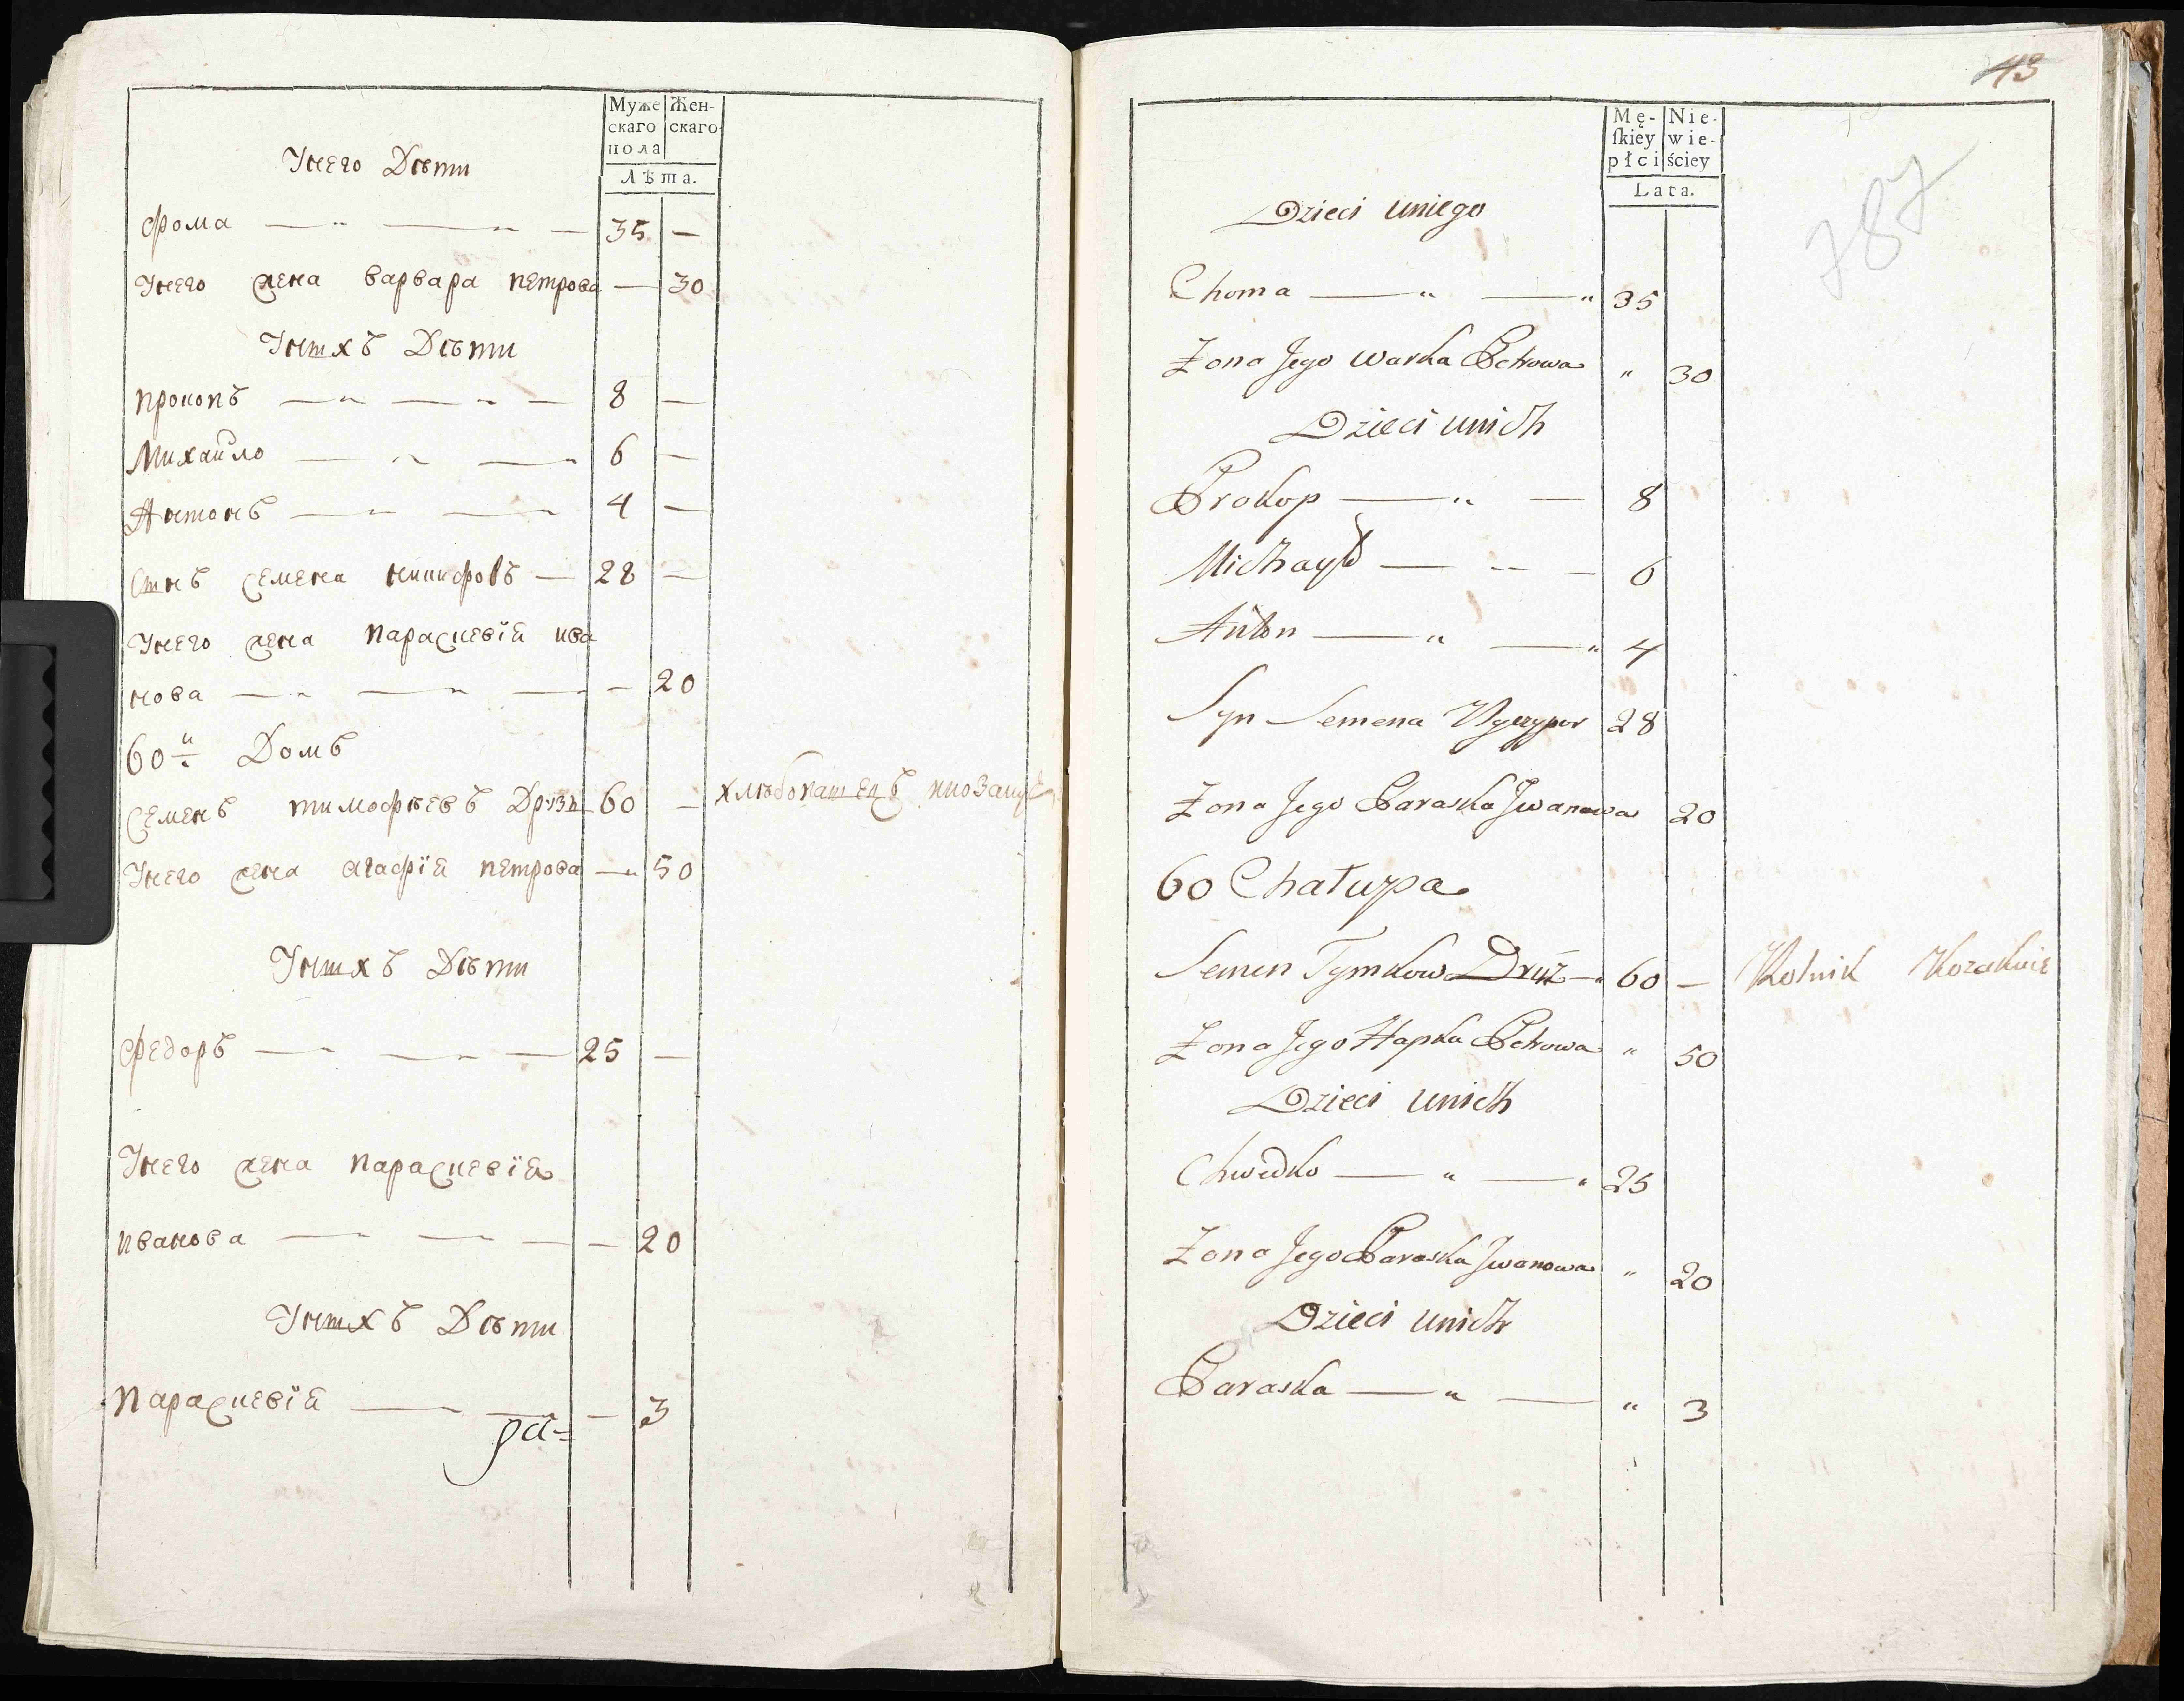 Муже
скаго
пола
Жен-
скаго
Лѣта.
Унего Дѣти
Фома — „ — „ — 35 —
Унего жена варвара петрова — 30
Унихъ Дѣти
прокопъ — „ — „ — 8 —
Михайло — „ — „ 6 —
Антонъ — „ — „ 4 —
Сынъ семена никифоръ — 28 —
Унего жена параскевія ива
нова — „ — „ — — 20
60й Домъ
Семенъ тимофѣевъ 60 — хлѣбопашецъ
Унего жена агафія петрова — „ 50
Унихъ Дѣти
Федоръ — „ — „ — 25 —
Унего жена параскевія
иванова — „ — „ — — 20
Унихъ Дѣти
Параскевія — „ — „ — 3
ра=
43
787
Mę-
ſkiey
płci
Nie-
wie-
ściey
Lata.
Dzieci uniego
Choma — „ — „ 35
Żona Jego Warka Petrowa „ 30
Dzieci unich
Prokop — „ — 8
Michayło — „ — 6
Anton — „ — „ 4
Syn Semena 28
Żona Jego Paraska Jwanowa 20
60 Chałupa
Semen Tymkow Druz — „ 60 — Rolnik
Żona Jego Hapka Petrowa „ 50
Dzieci unich
Chwedko — „ — „ 25
Żona Jego Paraska Jwanowa „ 20
Dzieci unich
Paraska — „ — „ 3